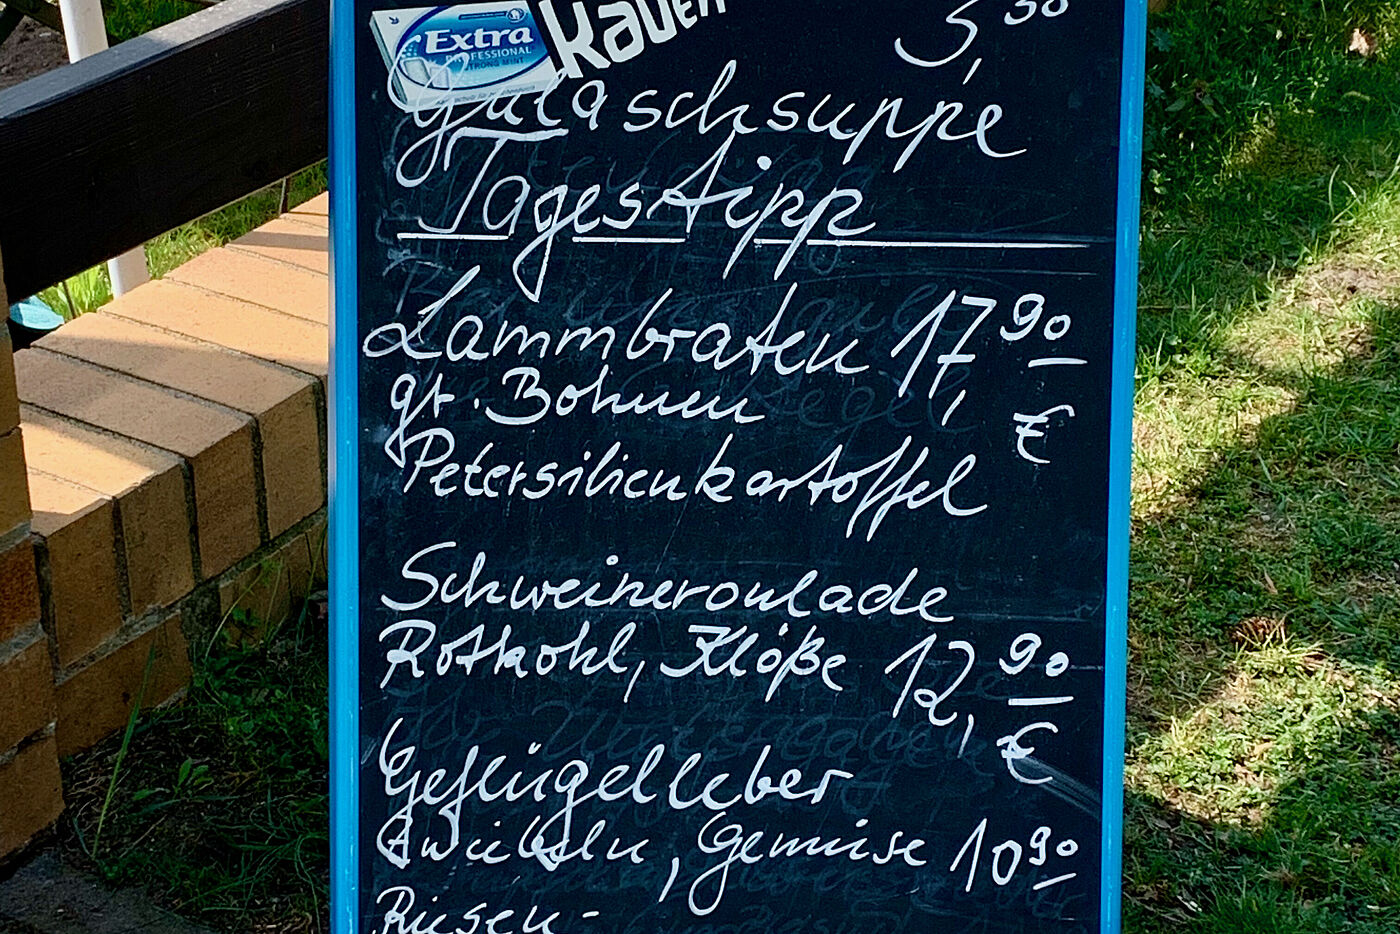 Extra
PROFESSIONAL
STRONG MINT
Kauen
5,50
Gulaschsuppe
Tagestipp
Lammbraten 17,90
gr. Bohnen €
Petersilienkartoffel
Schweineroulade
Rotkohl, Klöße 12,90
€
Geflügelleber
Zwiebeln, Gemüse 10,90
Riesen-